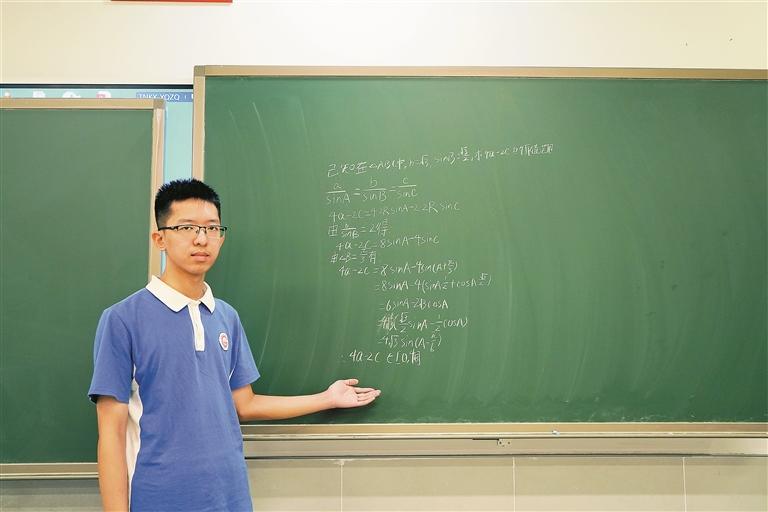 已知在△ABC中, b=√3, sinB=√3/2, 求4a-2c的取值范围
a/sinA = b/sinB = c/sinC
4a-2c=4·2RsinA-2·2RsinC
由 b/sinB =2得
4a-2c=8sinA-4sinC
由∠B=π/3有
4a-2c=8sinA-4sin(A+π/3)
=8sinA-4(sinA 1/2+cosA √3/2)
=6sinA-2√3cosA
(√3/2 sinA-1/2 cosA)
=4√3sin(A-π/6)
∴4a-2c∈